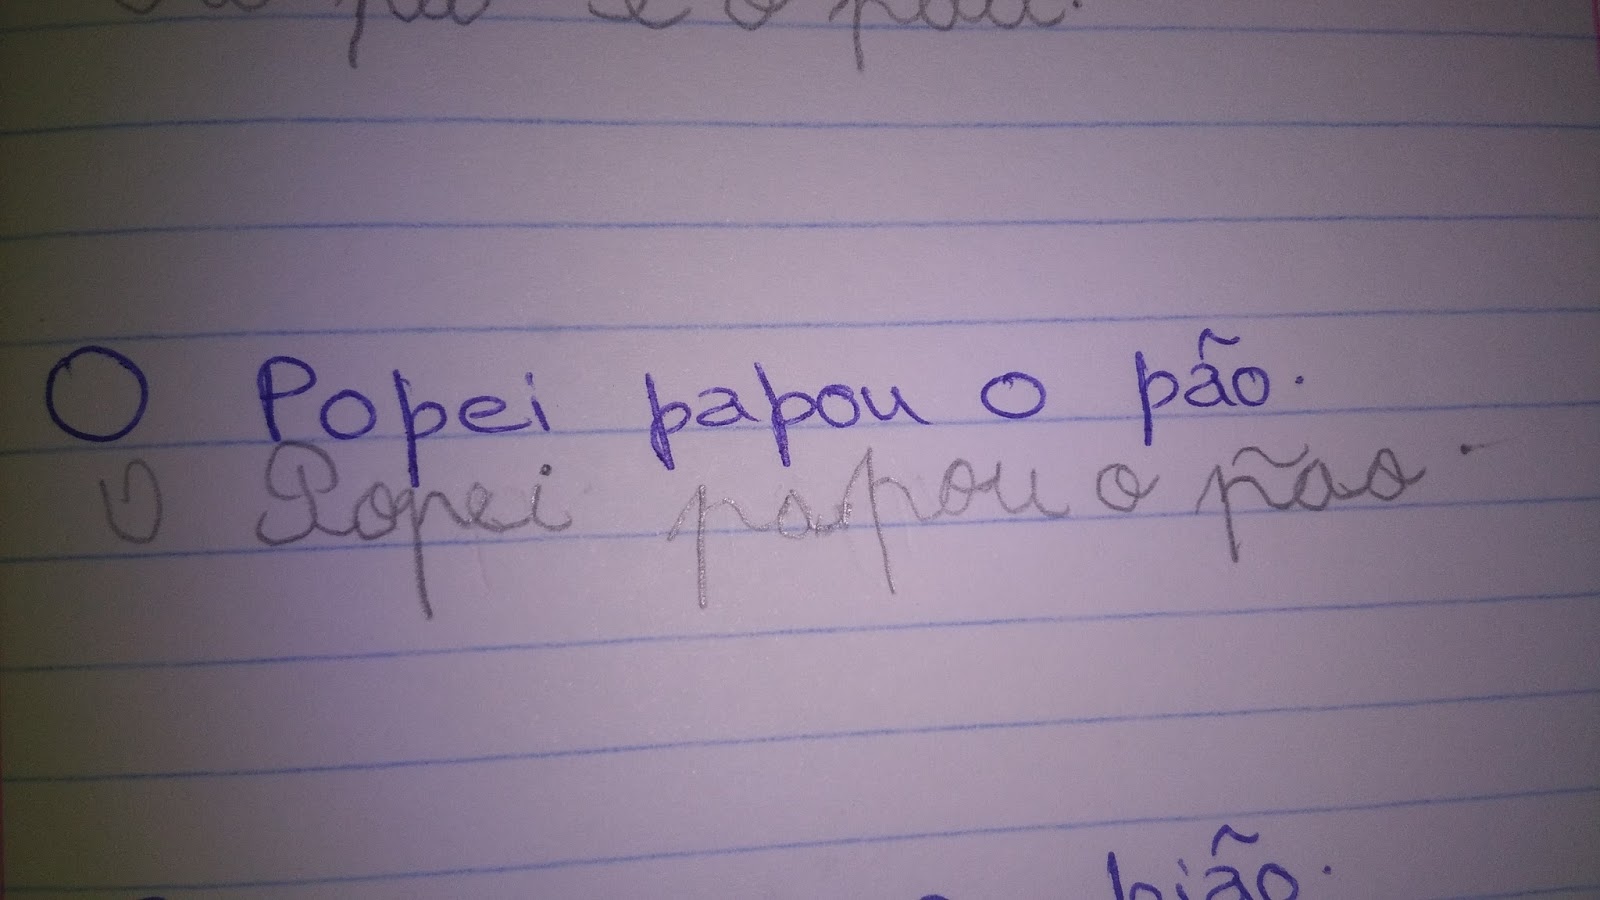 e o
O Popei papou o pão.
O Popei papou o pão.
pião.